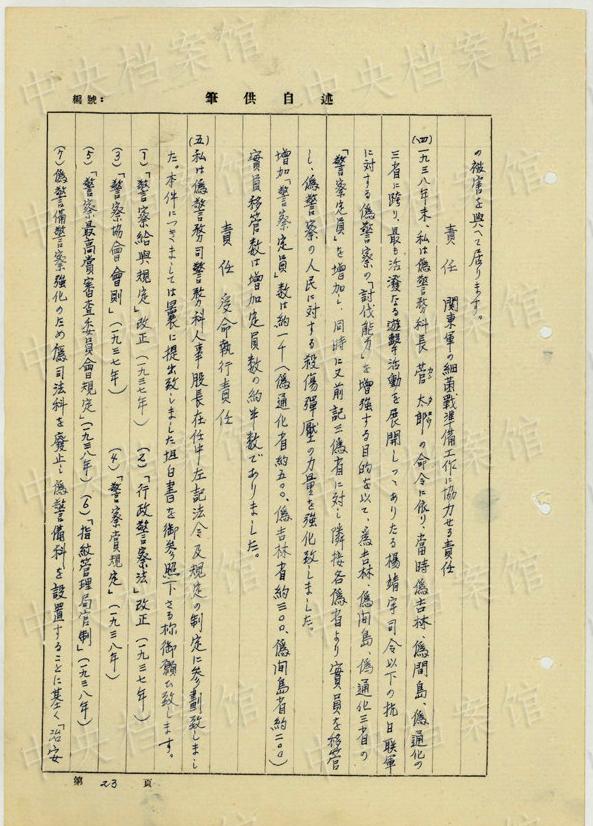 編號：
筆供自述
の被害を與へて居ります。
責任　関東軍の細菌戰準備工作に協力せる責任
(四)一九三八年末、私は偽警務科長　菅　太郎の命令に依り、當時偽吉林、偽間島、偽通化の
三省に跨り、最も活潑なる遊撃活動を展開しつゝありたる楊靖宇司令以下の抗日联軍
に対する偽警察の「討伐能力」を增強する目的を以て、偽吉林、偽间島、偽通化三省の
「警察定員」を增加し、同時に又前記三偽省に対し隣接各偽省より實員を移管
し、偽警察の人民に対する殺傷彈壓の力量を強化致しました。
增加「警察定員」数は約一千(偽通化省約五〇〇、偽吉林省約三〇〇、偽间島省約二〇〇)
實員移管数は增加定員数の約半数でありました。
責任　受命執行責任
(五)私は偽警務司警務科人事股長在任中左記法令及規定の制定に参劃致しまし
た。本件につきましては曩に提出致しました坦白書を御参照下さる様御願ひ致します。
(1)「警察給與規定」改正(一九三七年)　(2)「行政警察法」改正(一九三七年)
(3)「警察協會會則」(一九三七年)　(4)「警察賞規定」(一九三八年)
(5)「警察最高賞審査委員會規定」(一九三八年)　(6)「指紋管理局官制」(一九三八年)
(7)偽警備警察強化のため偽司法科を廢止し偽警備科を設置することに基く「治安
第 23 頁
中央档案馆